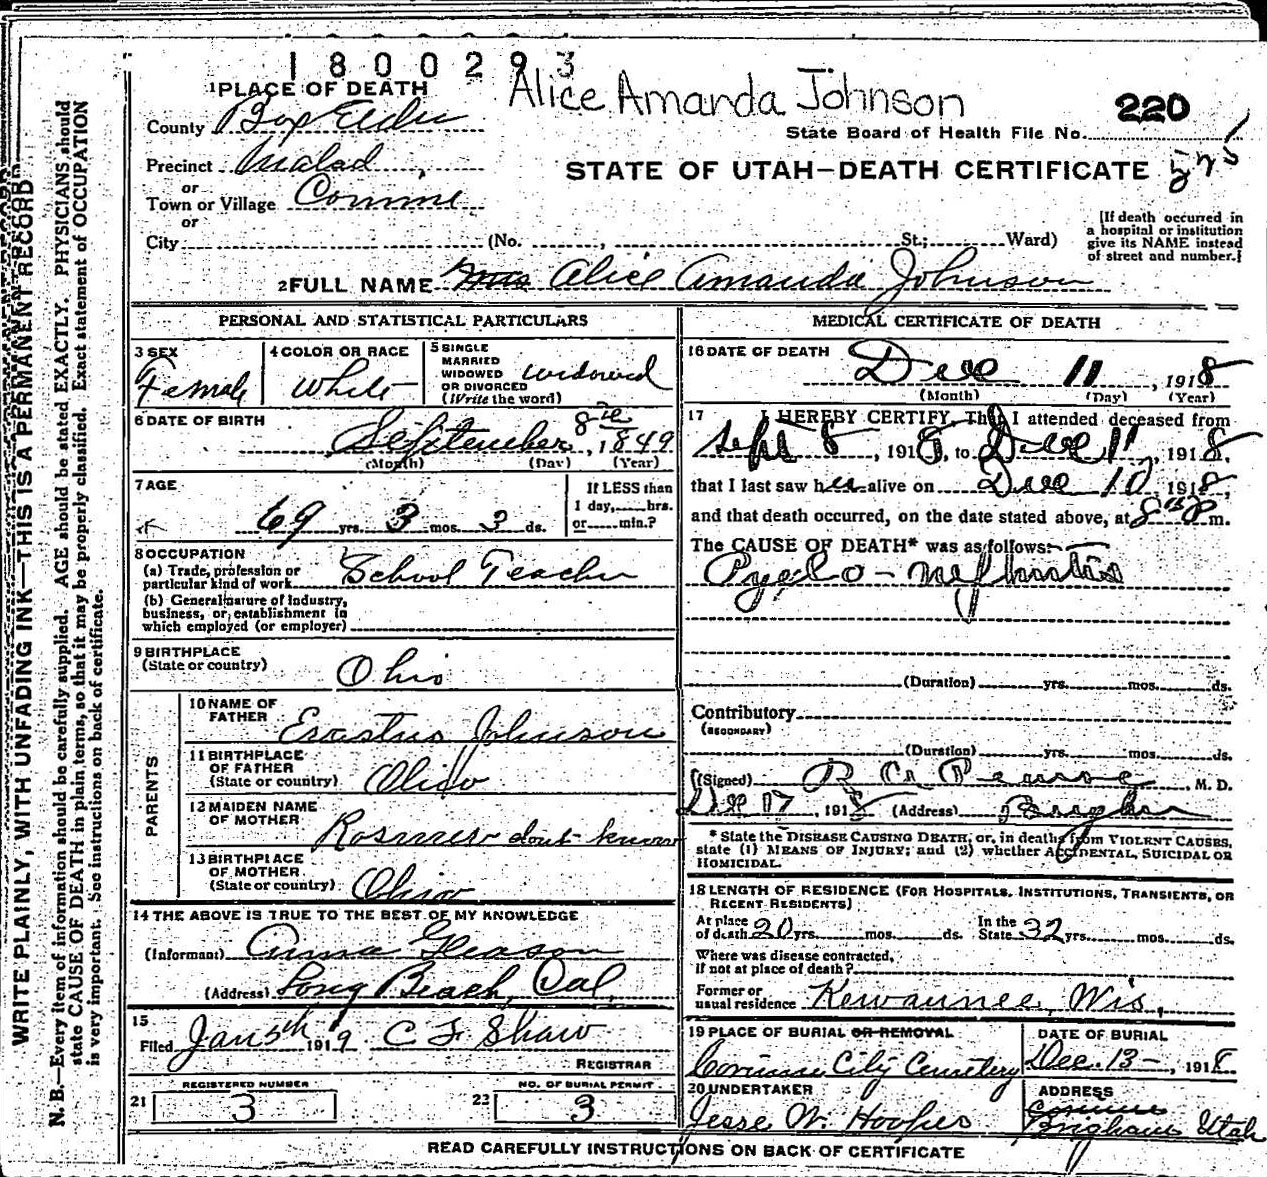 1800293
Alice Amanda Johnson
220
1 PLACE OF DEATH
County Box Elder
State Board of Health File No.
Precinct Malad
STATE OF UTAH—DEATH CERTIFICATE
or
Town or Village Corinne
or
City (No. , St.; Ward)
[If death occurred in
a hospital or institution
give its NAME instead
of street and number.]
2 FULL NAME Mrs Alice Amanda Johnson
PERSONAL AND STATISTICAL PARTICULARS
3 SEX
Female
4 COLOR OR RACE
White
5 SINGLE
MARRIED
WIDOWED
OR DIVORCED
(Write the word)
widowed
6 DATE OF BIRTH
September 8th, 1849
(Month) (Day) (Year)
7 AGE
69 yrs. 3 mos. 3 ds.
If LESS than
1 day, hrs.
or min.?
8 OCCUPATION
(a) Trade, profession or
particular kind of work School Teacher
(b) General nature of industry,
business, or establishment in
which employed (or employer)
9 BIRTHPLACE
(State or country)
Ohio
PARENTS
10 NAME OF
FATHER
Erastus Johnson
11 BIRTHPLACE
OF FATHER
(State or country) Ohio
12 MAIDEN NAME
OF MOTHER
dont know
13 BIRTHPLACE
OF MOTHER
(State or country) Ohio
14 THE ABOVE IS TRUE TO THE BEST OF MY KNOWLEDGE
(Informant) Anna Gleason
(Address) Long Beach, Cal.
15
Filed Jan 5th 1919 C F Shaw
REGISTRAR
REGISTERED NUMBER
21 3
NO. OF BURIAL PERMIT
22 3
MEDICAL CERTIFICATE OF DEATH
16 DATE OF DEATH
Dec 11, 1918
(Month) (Day) (Year)
17 I HEREBY CERTIFY, That I attended deceased from
Sept 8, 1918, to Dec 11, 1918,
that I last saw her alive on Dec 10, 1918,
and that death occurred, on the date stated above, at 8 P m.
The CAUSE OF DEATH* was as follows:
Pyelo-nephritis
(Duration) yrs. mos. ds.
Contributory
(SECONDARY)
(Duration) yrs. mos. ds.
(Signed) M. D.
Dec 17, 1918 (Address) Brigham
* State the DISEASE CAUSING DEATH, or, in deaths from VIOLENT CAUSES,
state (1) MEANS OF INJURY; and (2) whether ACCIDENTAL, SUICIDAL OR
HOMICIDAL.
18 LENGTH OF RESIDENCE (FOR HOSPITALS, INSTITUTIONS, TRANSIENTS, OR
RECENT RESIDENTS)
At place
of death 20 yrs. mos. ds.
In the
State 32 yrs. mos. ds.
Where was disease contracted,
if not at place of death?
Former or
usual residence Kewaunee, Wis.,
19 PLACE OF BURIAL OR REMOVAL
Corinne City Cemetery
DATE OF BURIAL
Dec. 13—, 1918
20 UNDERTAKER
Jesse W. Hooper
ADDRESS
Corinne
Brigham Utah
READ CAREFULLY INSTRUCTIONS ON BACK OF CERTIFICATE
WRITE PLAINLY, WITH UNFADING INK—THIS IS A PERMANENT RECORD
N. B.—Every item of information should be carefully supplied. AGE should be stated EXACTLY. PHYSICIANS should
state CAUSE OF DEATH in plain terms, so that it may be properly classified. Exact statement of OCCUPATION
is very important. See instructions on back of certificate.